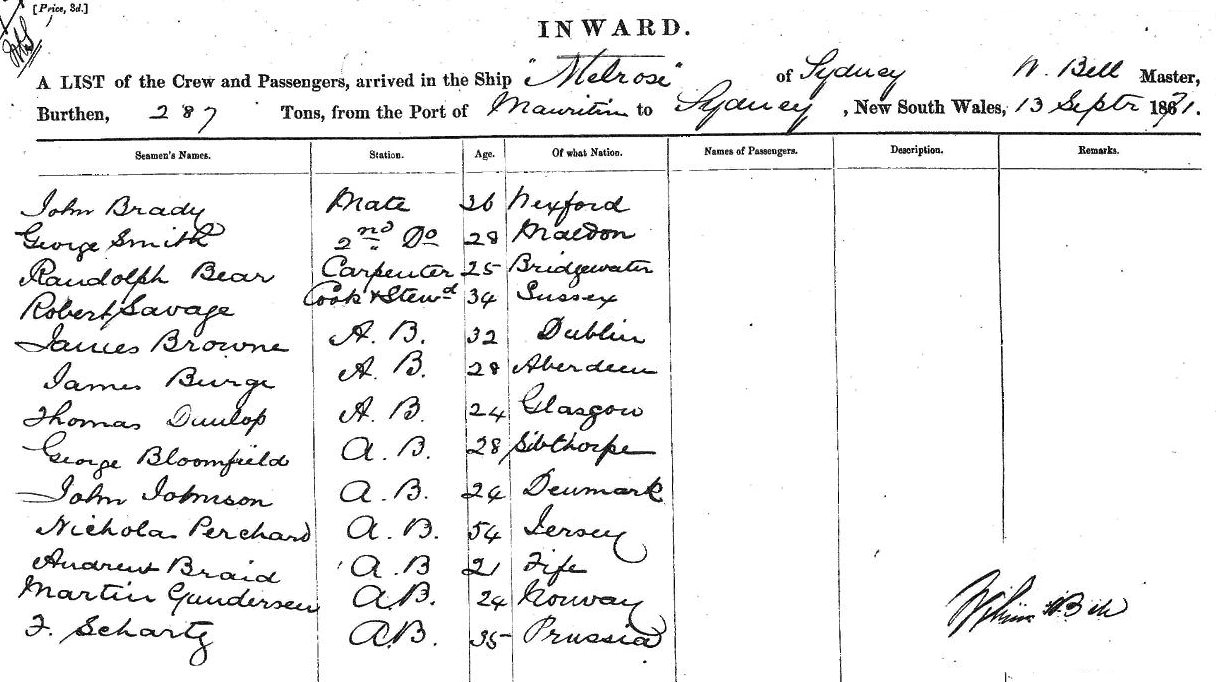 [Price, 3d.]
INWARD.
A LIST of the Crew and Passengers, arrived in the Ship "Melrose" of Sydney W. Bell Master,
Burthen, 287 Tons, from the Port of Mauritius to Sydney, New South Wales, 13 Septr 1871.
Seamen's Names. Station. Age. Of what Nation. Names of Passengers. Description. Remarks.
John Brady Mate 26 Wexford
George Smith 2nd Do 28 Maldon
Randolph Bear Carpenter 25 Bridgewater
Robert Savage Cook & Stewd 34 Sussex
James Browne A. B. 32 Dublin
James Burge A. B. 28 Aberdeen
Thomas Dunlop A. B. 24 Glasgow
George Bloomfield A. B. 28 Sibthorpe
John Johnson A. B. 24 Denmark
Nicholas Perchard A. B. 54 Jersey
Andrew Braid A. B 21 Fife
Martin Gundersen A.B. 24 Norway
F. Schartz A.B. 35 Prussia